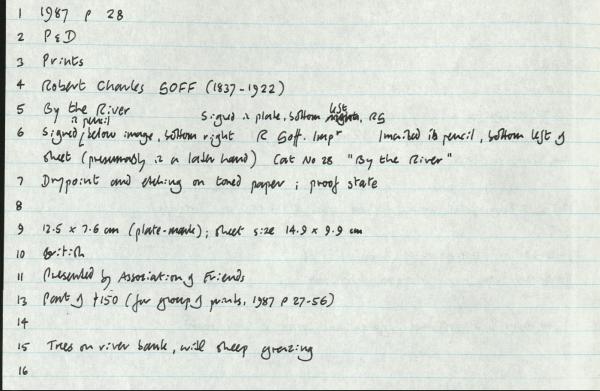 1 1987 P 28
2 P & D
3 Prints
4 Robert Charles GOFF (1837-1922)
5 By the River
in pencil Signed in plate, bottom left, RG
6 Signed, below image, bottom right R Goff. Impr Inscribed in pencil, bottom left of
sheet (presumably in a later hand) Cat No 28 "By the River"
7 Drypoint and etching on toned paper; proof state
8
9 12.5 x 7.6 cm (plate-mark); sheet size 14.9 x 9.9 cm
10 British
11 Presented by Association of Friends
13 Part of £150 (for group of prints, 1987 P 27-56)
14
15 Trees on river bank, with sheep grazing
16